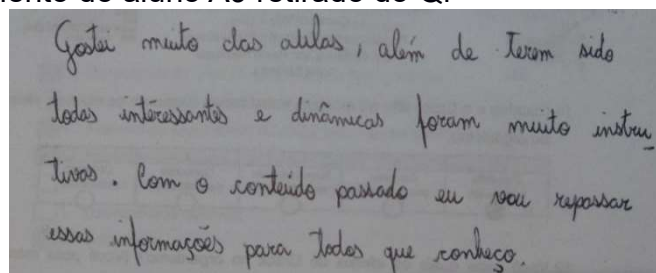 Gostei muito das aulas, além de Terem sido
todas interessantes e dinâmicas foram muito instru_
tivas. Com o conteúdo passado eu vou repassar
essas informações para todos que conheço.